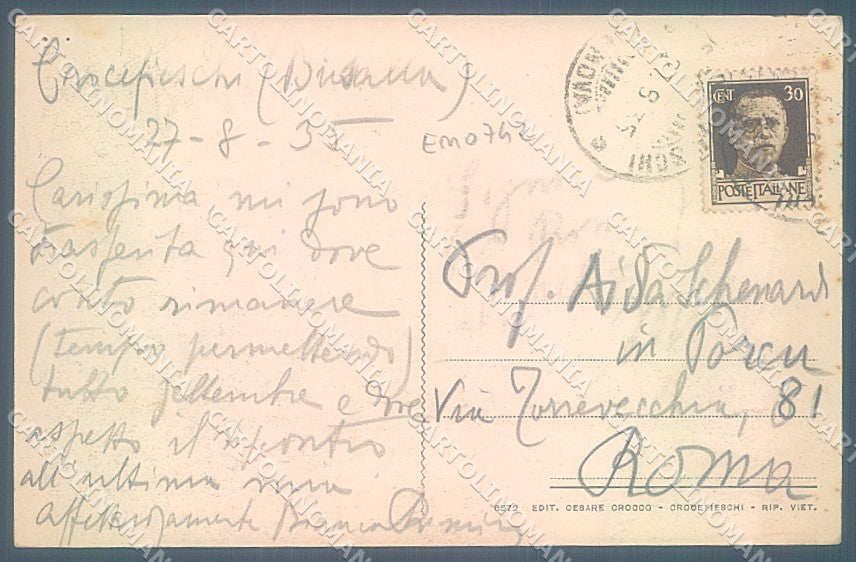 Crocefieschi (Busalla)
27-8-35
EM0742
Carissima mi sono
trasferita qui dove
conto rimanere
(tempo permettendo)
tutto settembre e dove
aspetto il riscontro
all'ultima mia
Affettuosamente Bianca
CENT 30
POSTE ITALIANE
Prof. Aida Schenardi
in Porcu
Via Torrevecchia, 81
Roma
6572 EDIT. CESARE CROCCO - CROCEFIESCHI - RIP. VIET.
CARTOLINOMANIA